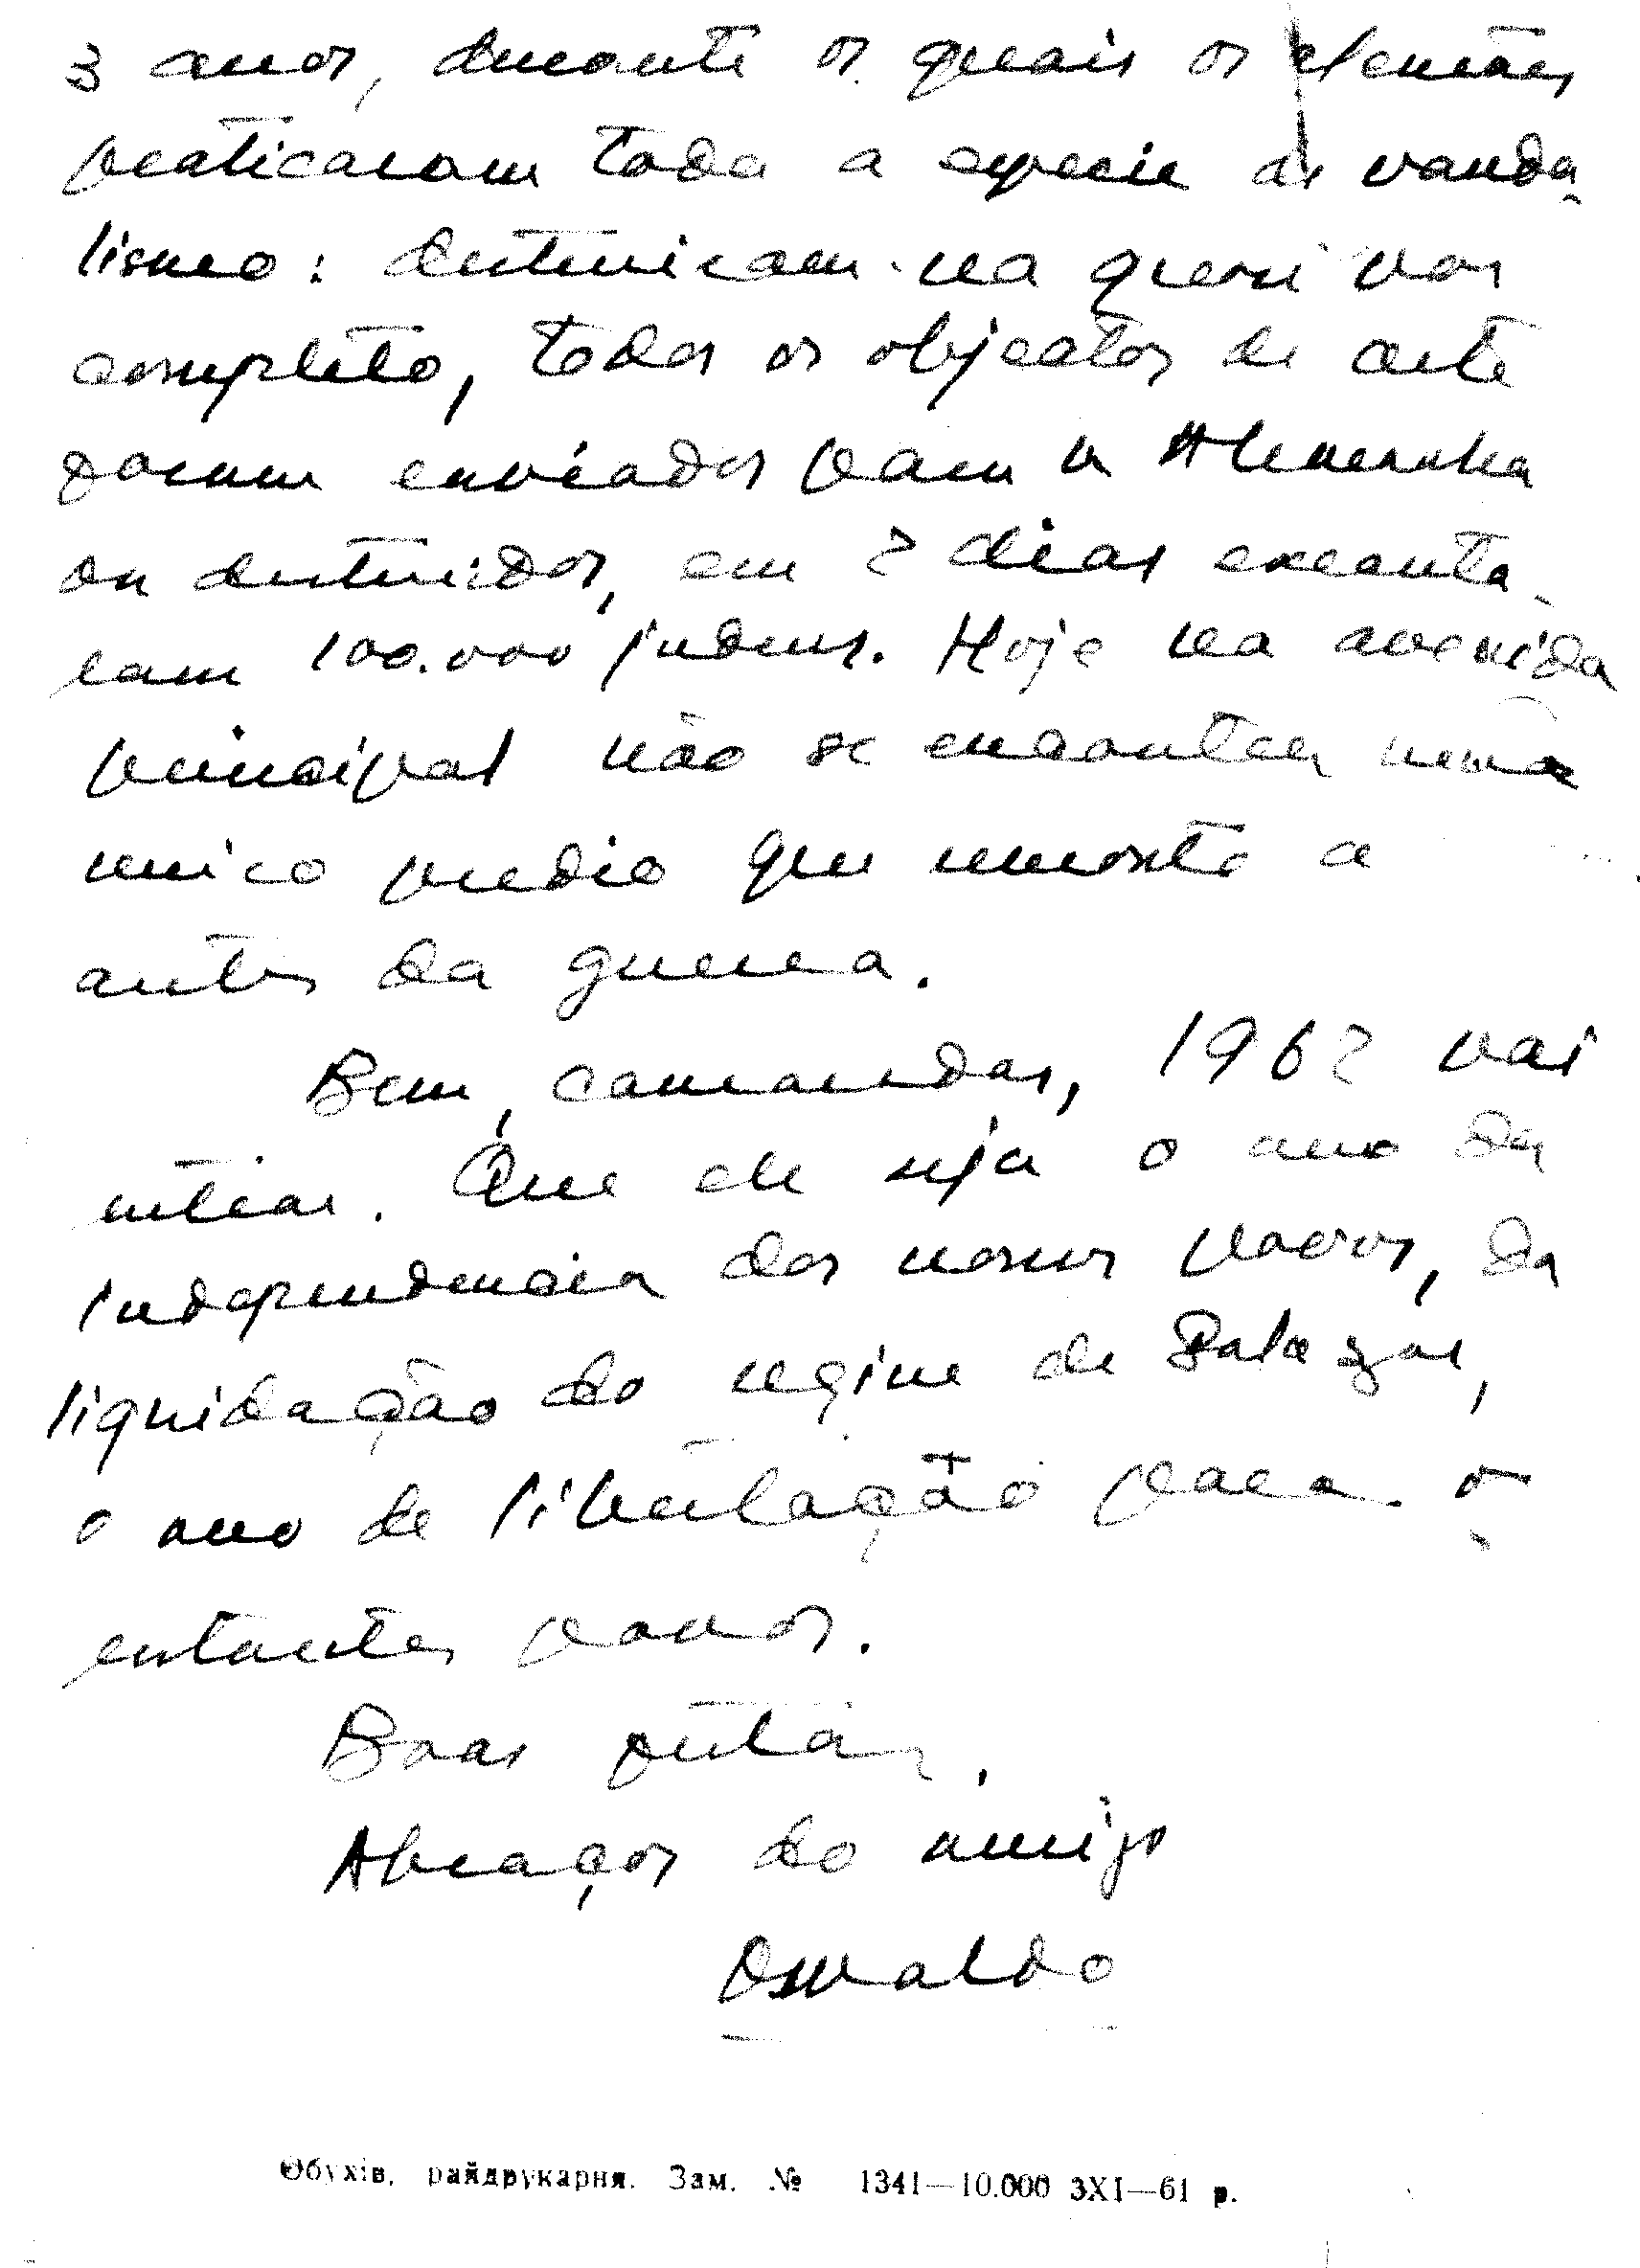 3 anos, durante os quais os alemães
praticaram toda a especie de vanda-
lismo: destruiram-na quasi por
completo, todos os objectos de arte
foram enviados para a Alemanha
ou destruidos, em 2 dias executa-
ram 100.000 judeus. Hoje na avenida
principal não se encontra nem um
unico predio que remonte a
antes da guerra.
Bem, camaradas, 1962 vai
entrar. Que ele seja o ano da
independencia dos nossos povos, da
liquidação do regime de Salazar,
o ano de libertação para o
restantes povos.
Boas festas,
Abraços do amigo
Osvaldo
Обухів, райдрукарня. Зам. № 1341—10.000 3XI—61 р.